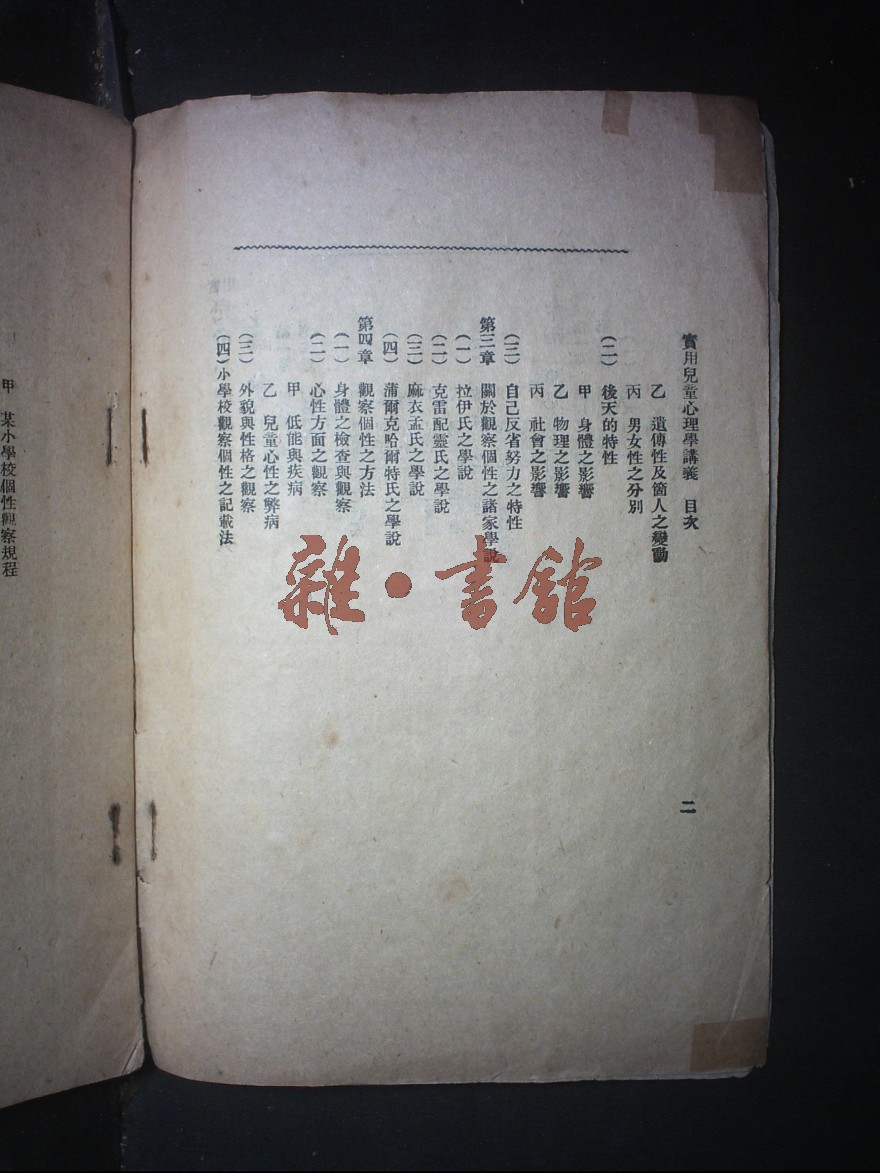 實用兒童心理學講義　目次
二
乙　遺傳性及箇人之變動
丙　男女性之分別
(二)　後天的特性
甲　身體之影響
乙　物理之影響
丙　社會之影響
(三)　自己反省努力之特性
第三章　關於觀察個性之諸家學說
(一)　拉伊氏之學說
(二)　克雷配靈氏之學說
(三)　麻衣孟氏之學說
(四)　蒲爾克哈爾特氏之學說
第四章　觀察個性之方法
(一)　身體之檢查與觀察
(二)　心性方面之觀察
甲　低能與疾病
乙　兒童心性之弊病
(三)　外貌與性格之觀察
(四)小學校觀察個性之記載法
甲　某小學校個性觀察規程
雜·書館